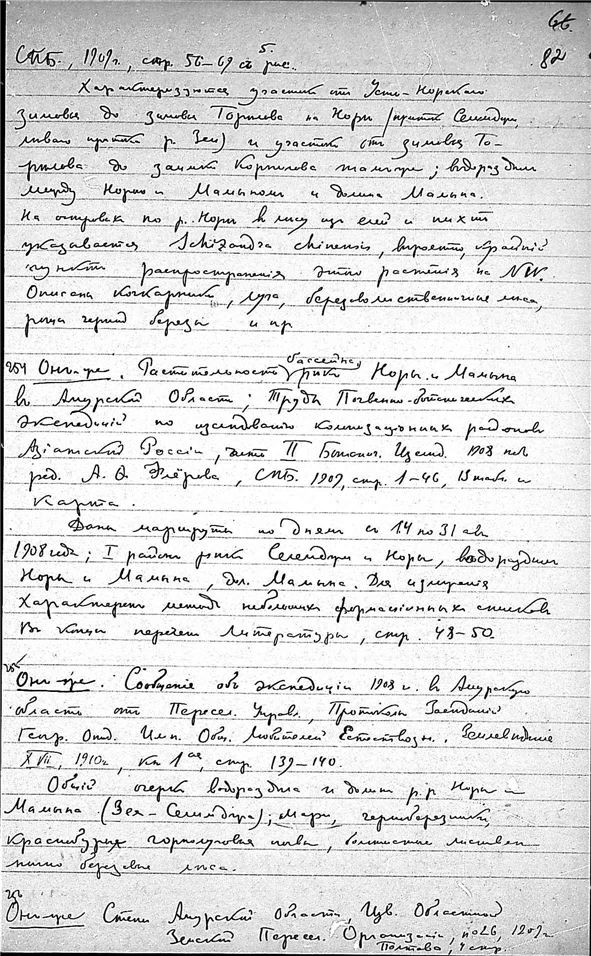 66.
82
СПБ., 1909 г., стр. 56–69 съ 5 рис.
Характеризуются участки от Усть-Норскаго
зимовья до зимовья Горилова на Норы (приток Селемджи,
притока р. Зеи) и участок от зимовья
до заимки Корнилова ; водораздел
между Норою и Мамыном и долина Мамына.
На островах по р. Норы в лесу из елей и пихт
указывается Schizandra chinensis, вероятно, крайній
пункт распространенія этого растенія на NW.
Описаны кочкарники, луга, березоволиственничные леса,
роща черной березы и пр
254 Он-же. Растительность бассейна рек Норы и Мамына
в Амурской Области; Труды Почвенно-ботанических
экспедицій по изследованію колонизаціонных районов
Азіатской Россіи, часть II Ботанич. Изслед. 1908 г.
ред. А. Ф. Флёрова, СПБ. 1909, стр. 1–46, 13 табл. и
карта.
Даны маршруты по дням с 14 по 31 авг
1908 года; I район реки Селемджи и Норы, водораздел
Норы и Мамына, дол. Мамына. Для
характерен метод небольших формаціонных списков
В конце перечень литературы, стр. 48–50.
255
Он-же. Сообщеніе об экспедиціи 1908 г. в Амурскую
область от Пересел. Управл., Протоколы Заседаній
Геогр. Отд. Имп. Общ. Любителей Естествозн., Землеведеніе
XVII, 1910 г., кн 1ая, стр. 139–140.
Общій очерк водораздела и долин р.р. Норы и
Мамына (Зея–Селемджа); мари, черноберезники,
лиственнично
березовые леса.
256
Он-же Степи Амурской Области, Изв. Областной
Земской Пересел. Организаціи, № 26, 1909 г.
Полтава, 4 стр.